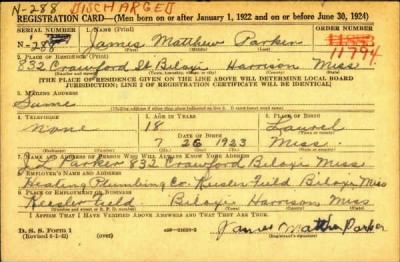 N-288 DISCHARGED
REGISTRATION CARD—(Men born on or after January 1, 1922 and on or before June 30, 1924)
SERIAL NUMBER 1. NAME (Print) ORDER NUMBER
N-288 James Matthew Parker 11794
2. PLACE OF RESIDENCE (Print)
832 Crawford St Biloxi Harrison Miss
(THE PLACE OF RESIDENCE GIVEN ON THE LINE ABOVE WILL DETERMINE LOCAL BOARD
JURISDICTION; LINE 2 OF REGISTRATION CERTIFICATE WILL BE IDENTICAL)
3. MAILING ADDRESS
Same
4. TELEPHONE 5. AGE IN YEARS 6. PLACE OF BIRTH
None 18 Laurel
DATE OF BIRTH
7 26 1923 Miss.
7. NAME AND ADDRESS OF PERSON WHO WILL ALWAYS KNOW YOUR ADDRESS
Parker 832 Crawford Biloxi Miss
8. EMPLOYER'S NAME AND ADDRESS
Heating Plumbing Co. Keesler Field Biloxi Miss
9. PLACE OF EMPLOYMENT OR BUSINESS
Keesler Field Biloxi Harrison Miss
I AFFIRM THAT I HAVE VERIFIED ABOVE ANSWERS AND THAT THEY ARE TRUE.
D. S. S. Form 1
(Revised 6-9-42) James Matthew Parker